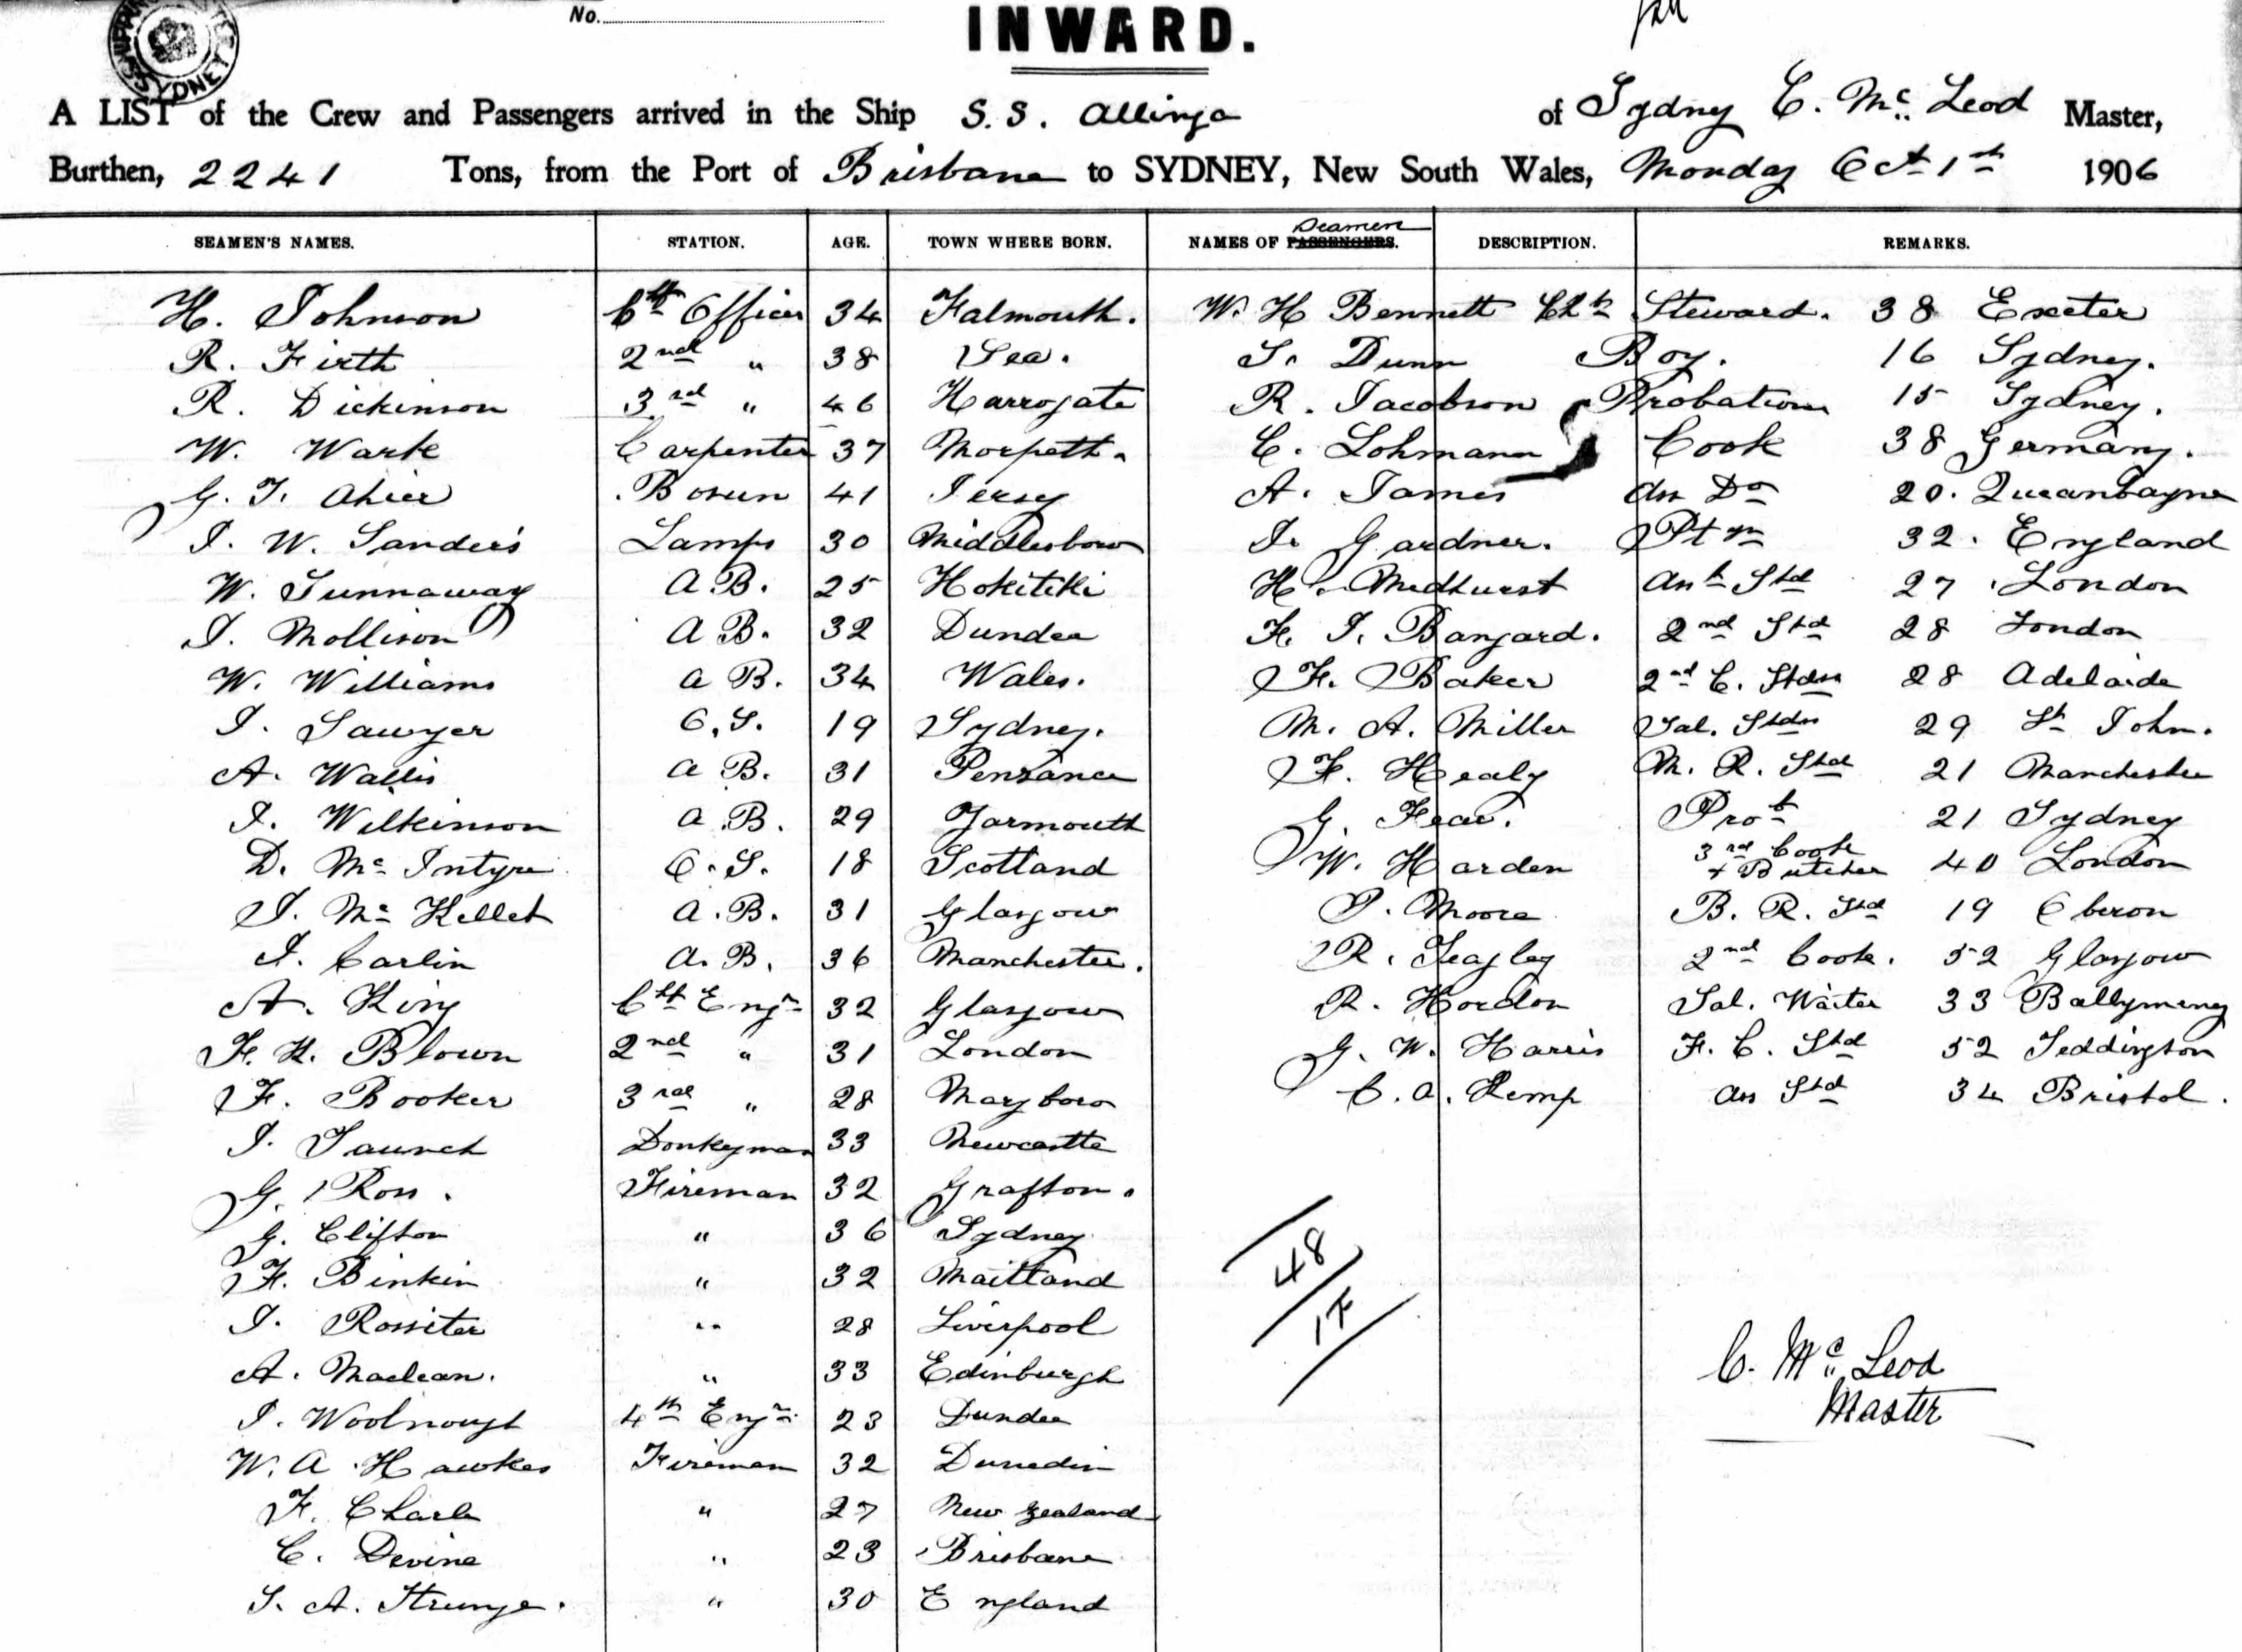 No.
INWARD.
A LIST of the Crew and Passengers arrived in the Ship S.S. Allinga of Sydney C. Mc Leod Master,
Burthen, 2241 Tons, from the Port of Brisbane to SYDNEY, New South Wales, Monday Oct 1st 1906
SEAMEN'S NAMES. STATION. AGE. TOWN WHERE BORN. NAMES OF PASSENGERS. Seamen DESCRIPTION. REMARKS.
H. Johnson Officer 34 Falmouth. W. H Bennett Steward. 38 Exeter
R. Firth 2nd " 38 Sea. Dunn Boy. 16 Sydney.
R. Dickinson 3rd " 46 Harrogate R. Jacobson 15 Sydney.
W. Wark Carpenter 37 Morpeth. C. Lohmann Cook 38 Germany.
G. J. Ahier Bosun 41 Jersey A. James Ass Do 20. Queanbayne
J. W. Sanders Lamps 30 Middlesboro J. Gardner. 32. England
W. Tunnaway A.B. 25 Hokitiki H. Medhurst Asst Std 27 London
J. Mollison A B. 32 Dundee F. J. Banyard. 2nd Std 28 London
W. Williams A B. 34 Wales. F. Baker 2nd C. Stdss 28 Adelaide
J. Sawyer O.S. 19 Sydney. M. A. Miller Sal. Stdss 29 St John.
A. Wallis A B. 31 Penzance F. Healy M. R. Std 21 Manchester
J. Wilkinson A.B. 29 Yarmouth G. Fear. Prob 21 Sydney
D. Mc Intyre O.S. 18 Scotland W. Harden 3rd Cook + Butcher 40 London
J. Mc Kellet A.B. 31 Glasgow P. Moore B. R. Std 19 Oberon
J. Carlin A.B. 36 Manchester. R. 2nd Cook. 52 Glasgow
A. King Engr 32 Glasgow R. Hordon Sal. Waiter 33 Ballymeney
F. H. Blown 2nd " 31 London G. W. Harris F. C. Std 52 Teddington
F. Booker 3rd " 28 Maryboro C. A. Kemp Ass Std 34 Bristol.
J. Donkeyman 33 Newcastle
G. Ross. Fireman 32 Grafton.
G. Clifton " 36 Sydney
F. Binkin " 32 Maitland
J. Rossiter " 28 Liverpool
A. Maclean. " 33 Edinburgh
J. Woolnough 4th Engr. 23 Dundee
W. A. Hawkes Fireman 32 Dunedin
F. " 27 New Zealand
C. Devine " 23 Brisbane
S. A. " 30 England
48
17
C. Mc Leod
Master